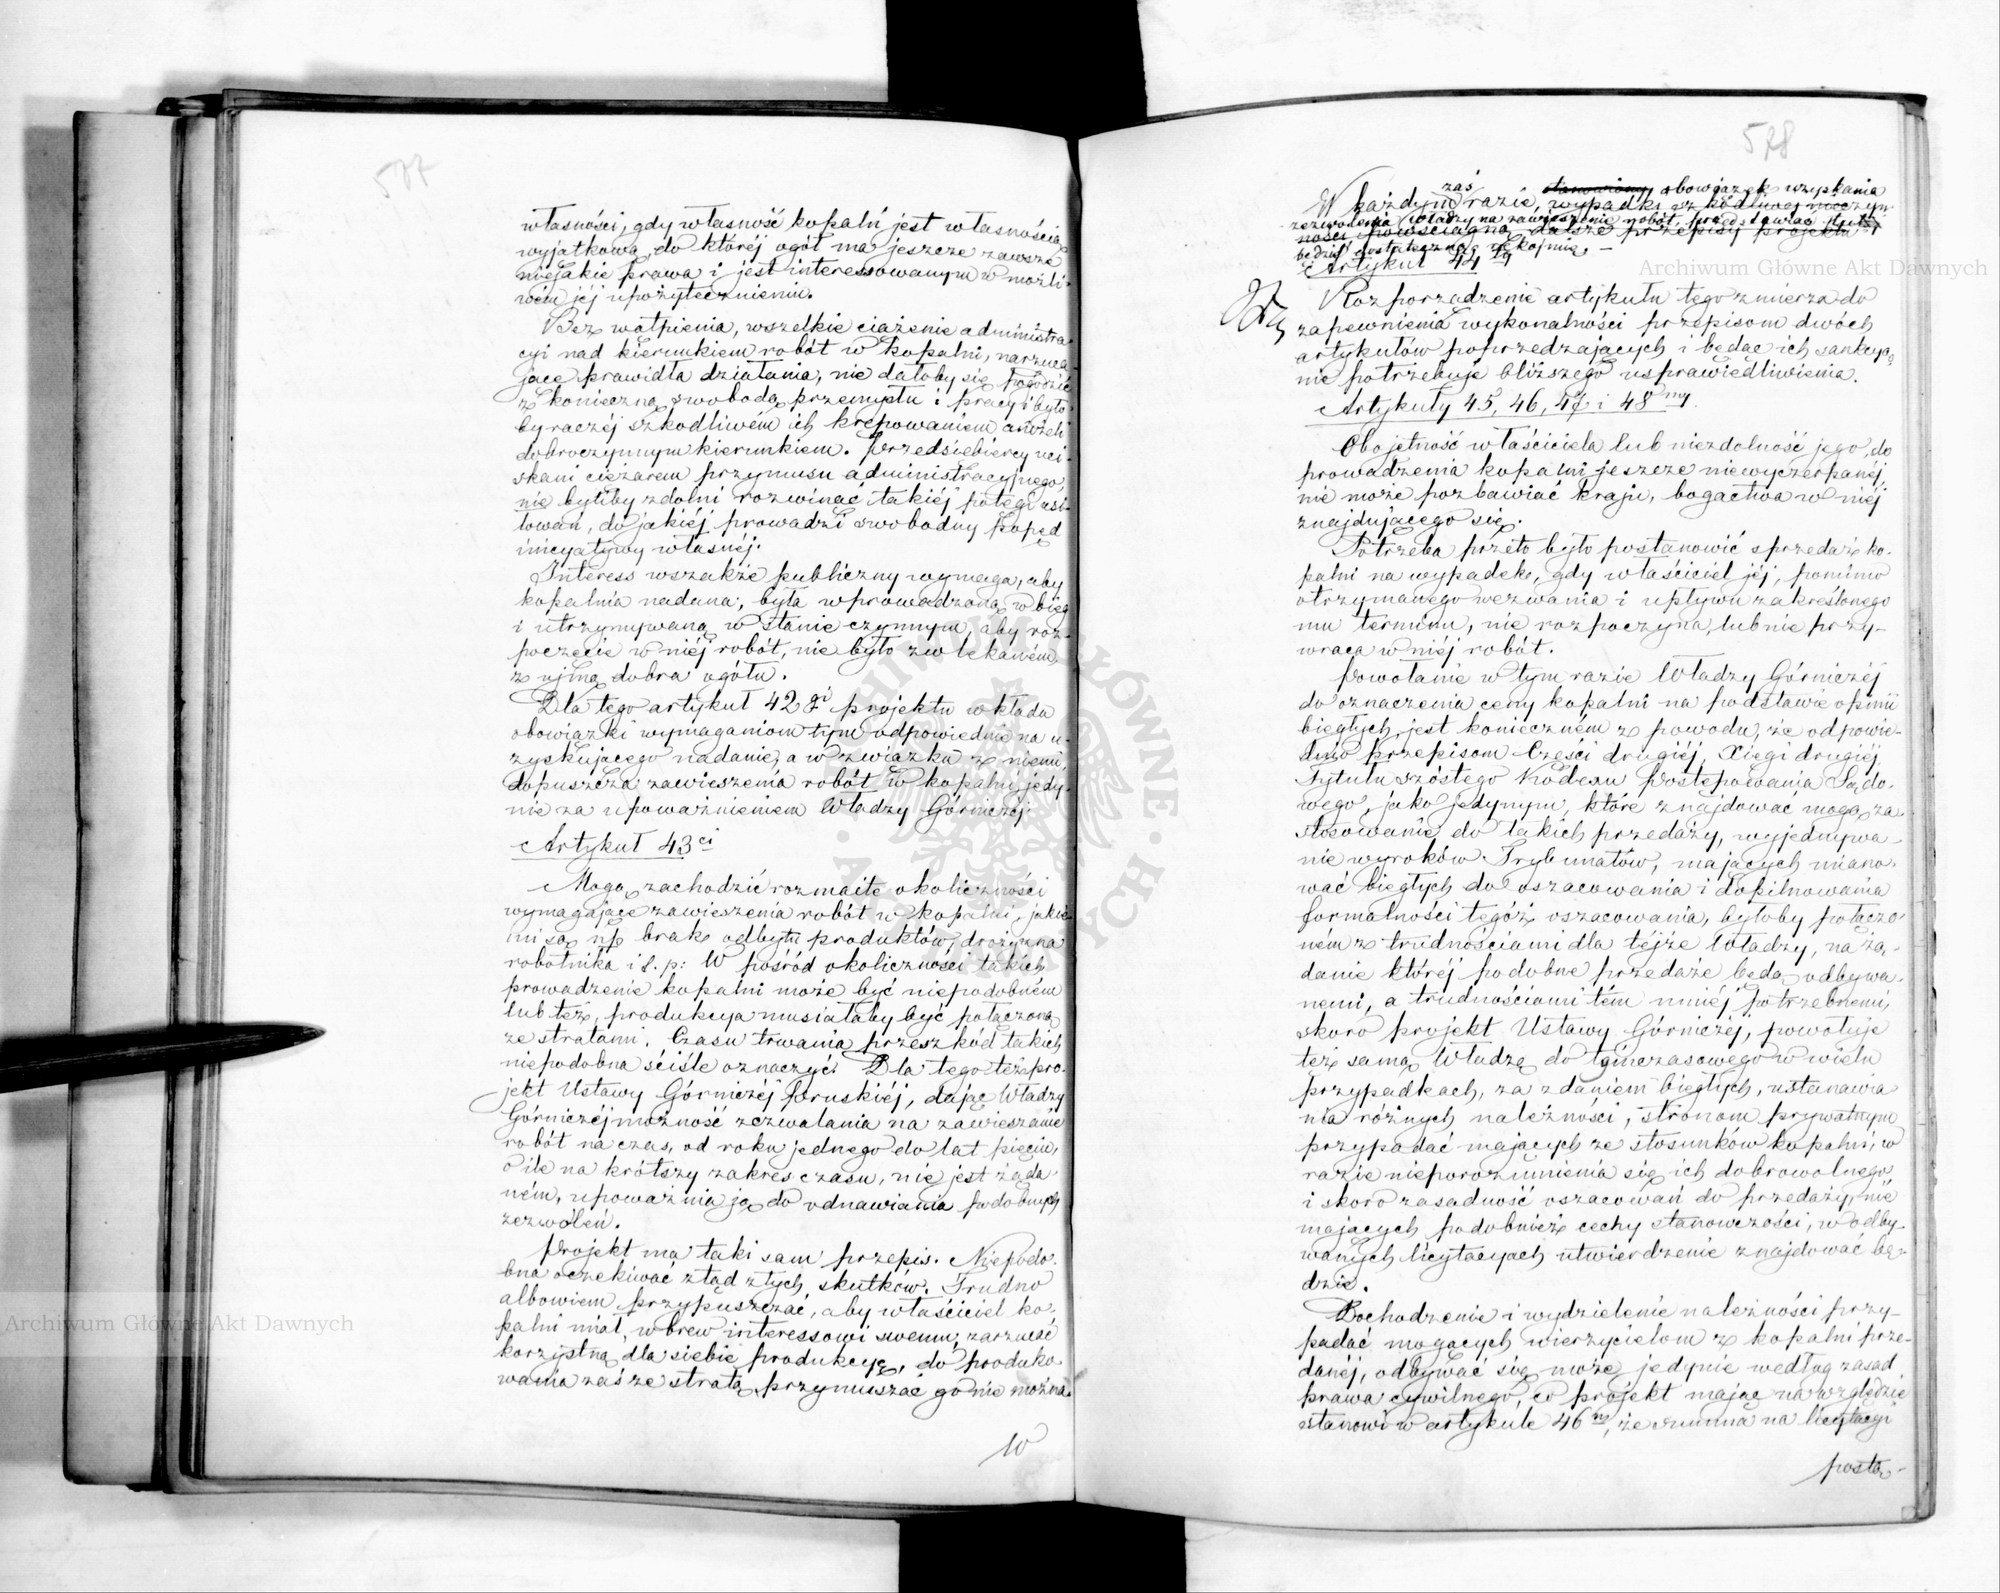 577
własności, gdy własność kopalń jest własnością
wyjątkową, do któréj ogół ma jeszcze zawsze
niejakie prawa i jest interessowanym w możli-
wém jéj upożytecznieniu.
Bez wątpienia, wszelkie ciążenie administra-
cyi nad kierunkiem robót w kopalni, narzuca-
jące prawidła działania, nie dałoby się pogodzić
z konieczną swobodą przemysłu i pracy i było-
by raczéj szkodliwém ich krępowaniem aniżeli
dobroczynnym kierunkiem. Przedsiębiercy uci-
skani ciężarem przymusu administracyjnego,
nie byliby zdolni rozwinąć takiéj potęgi usi-
łowań, do jakiéj prowadzi swobodny popęd
inicyatywy własnéj.
Interess wszakże publiczny wymaga, aby
kopalnia nadana, była wprowadzoną w bieg
i utrzymywaną w stanie czynnym, aby roz-
poczęcie w niéj robót, nie było zwlekaném,
z ujmą dobra ogółu.
Dla tego artykuł 42gi projektu wkłada
obowiązki wymaganiom tym odpowiednie na u-
zyskującego nadanie, a w związku z niemi,
dopuszcza zawieszenia robót w kopalni, jedy-
nie za upoważnieniem Władzy Górniczéj.
Artykuł 43ci
Mogą zachodzić rozmaite okoliczności
wymagające zawieszenia robót w kopalni, jakie-
mi są np brak odbytu produktów, drożyzna
robotnika i t. p: W pośród okoliczności takich
prowadzenie kopalni może być niepodobném
lub też, produkcya musiałaby być połączoną
ze stratami. Czasu trwania przeszkód takich
niepodobna ściśle oznaczyć. Dla tego też pro-
jekt Ustawy Górniczéj Pruskiéj, dając Władzy
Górniczéj możność zezwalania na zawieszanie
robót na czas, od roku jednego do lat pięciu,
o ile na krótszy zakres czasu, nie jest żąda-
ném, upoważnia ją do odnawiania podobnych
zezwoleń.
Projekt ma taki sam przepis. Niepodo-
bna oczekiwać ztąd złych skutków. Trudno
albowiem przypuszczać, aby właściciel ko-
palni miał, wbrew interessowi swemu, zarzucić
korzystną dla siebie produkcyę, do produko-
wania zaś ze stratą przymuszać go nie można.
W
578
zaś
W każdym razie, obowiązek uzyskania
wypadki szkodliwej nieczyn-
zezwolenia Władzy na zawieszenie robót
ności powściągną dalsze przepisy projektu
będzie dostateczną rękojmią.
Artykuł 44ty
Rozporządzenie artykułu tego zmierza do
zapewnienia wykonalności przepisom dwóch
artykułów poprzedzających i będąc ich sankcyą
nie potrzebuje bliższego usprawiedliwienia.
Artykuły 45, 46, 47 i 48my
Obojętność właściciela lub niezdolność jego do
prowadzenia kopalni jeszcze niewyczerpanéj,
nie może pozbawiać kraju, bogactwa w niéj
znajdującego się.
Potrzeba przeto było postanowić sprzedaż ko-
palni na wypadek, gdy właściciel jéj, pomimo
otrzymanego wezwania i upływu zakreślonego
mu terminu, nie rozpoczyna, lub nie przy-
wraca w niéj robót.
Powołanie w tym razie Władzy Górniczéj
do oznaczenia ceny kopalni na podstawie opinii
biegłych, jest konieczném z powodu, że odpowie-
dnio przepisom Części drugiéj, Xięgi drugiéj,
Tytułu szóstego Kodexu Postępowania Sądo-
wego, jako jedynym, które znajdować mogą za-
stosowanie do takich przedaży, wyjednywa-
nie wyroków Trybunałów, mających miano-
wać biegłych do oszacowania i dopilnowania
formalności tegóż oszacowania, byłoby połączo-
ném z trudnościami dla téjże Władzy, na żą-
danie któréj podobne przedaże będą odbywa-
nemi, a trudnościami tém mniéj potrzebnemi,
skoro projekt Ustawy Górniczéj, powołuje
też samą Władzę do tymczasowego w wielu
przypadkach, za zdaniem biegłych, ustanawia-
nia różnych należności, stronom prywatnym
przypadać mających ze stosunków kopalni, w
razie nieporozumienia się ich dobrowolnego
i skoro zasadność oszacowań do przedaży, nie
mających podobnież cechy stanowczości, w odby-
wanych licytacyach utwierdzenie znajdować bę-
dzie.
Dochodzenie i wydzielenie należności przy-
padać mogących wierzycielom z kopalni prze-
danéj, odbywać się może jedynie według zasad
prawa cywilnego, co projekt mając na względzie
stanowi w artykule 46m, że summa na licytacyi
posta-
Archiwum Główne Akt Dawnych
Archiwum Główne Akt Dawnych